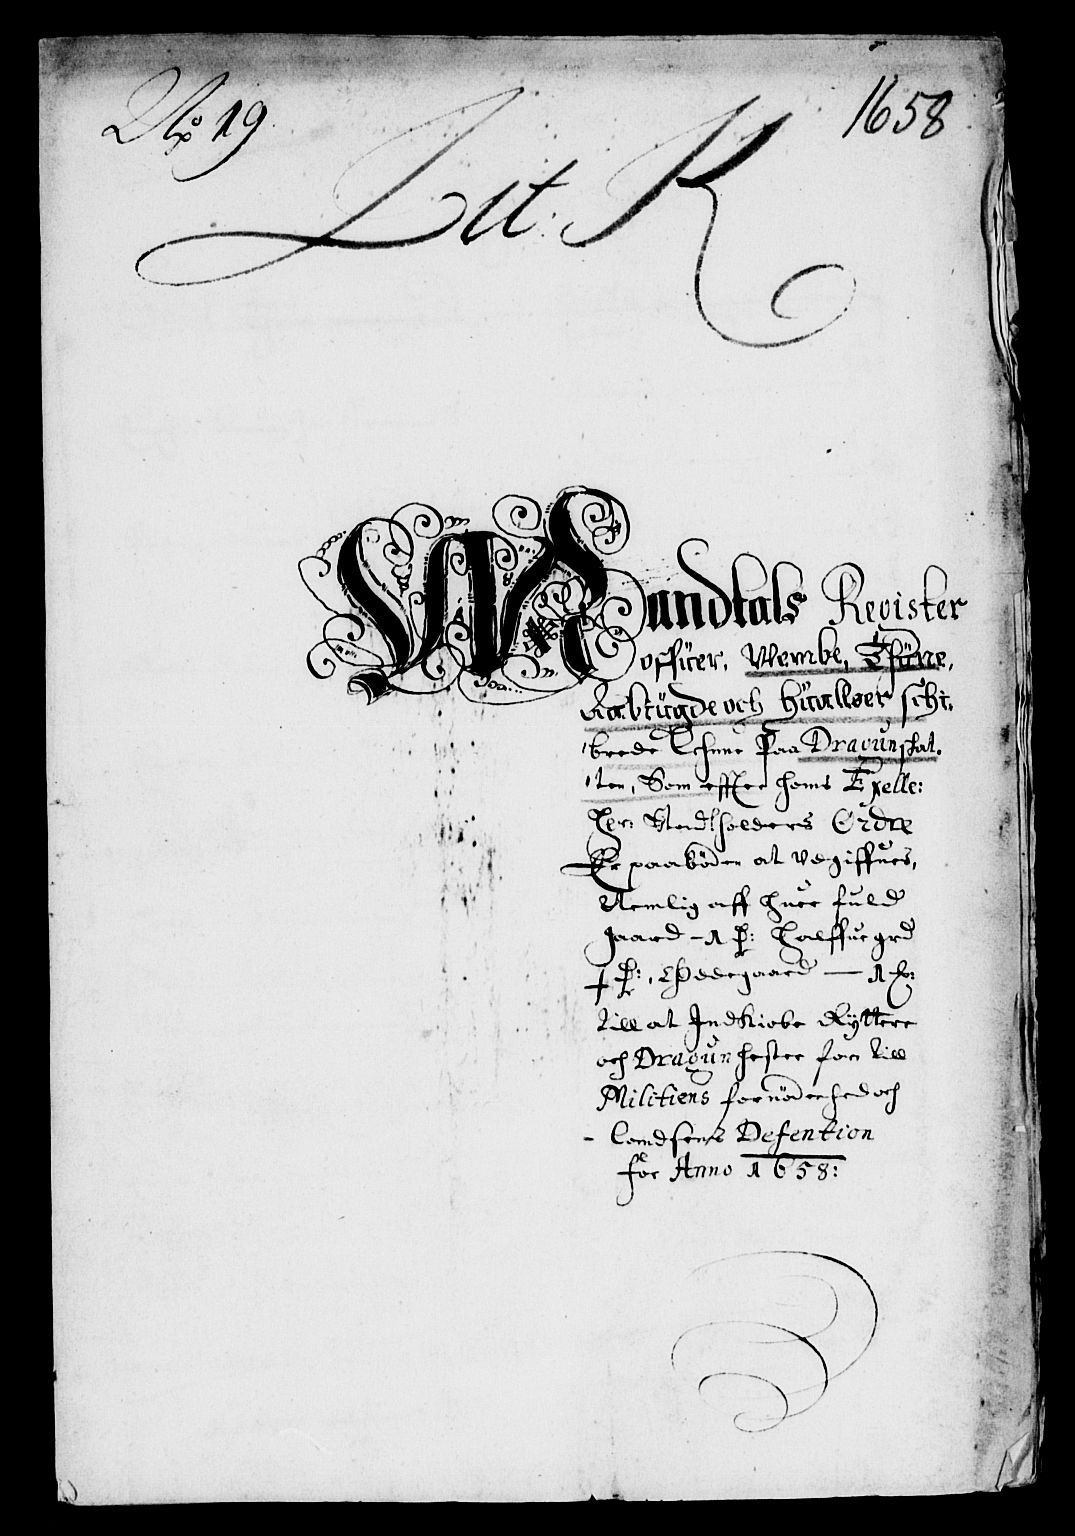 No 19
1658
Lit: K
Mandtals Register
offuer, Wembe, Thüne,
Aabÿgde och Huallser schi-
brede Lehne Paa Dragunskat-
ten, Som effter hans Exelle:
Her: Stadtholders Ordre
Er paaböden at udgiffues,
Nemlig aff huer fuld
gaard - 1 P: halffue grd
P:, Ødegaard — 1
till at Indkiøbe Rÿttere
och Dragun hester for till
Militiens fornödenhed och
Landsens Defention
for Anno 1658: